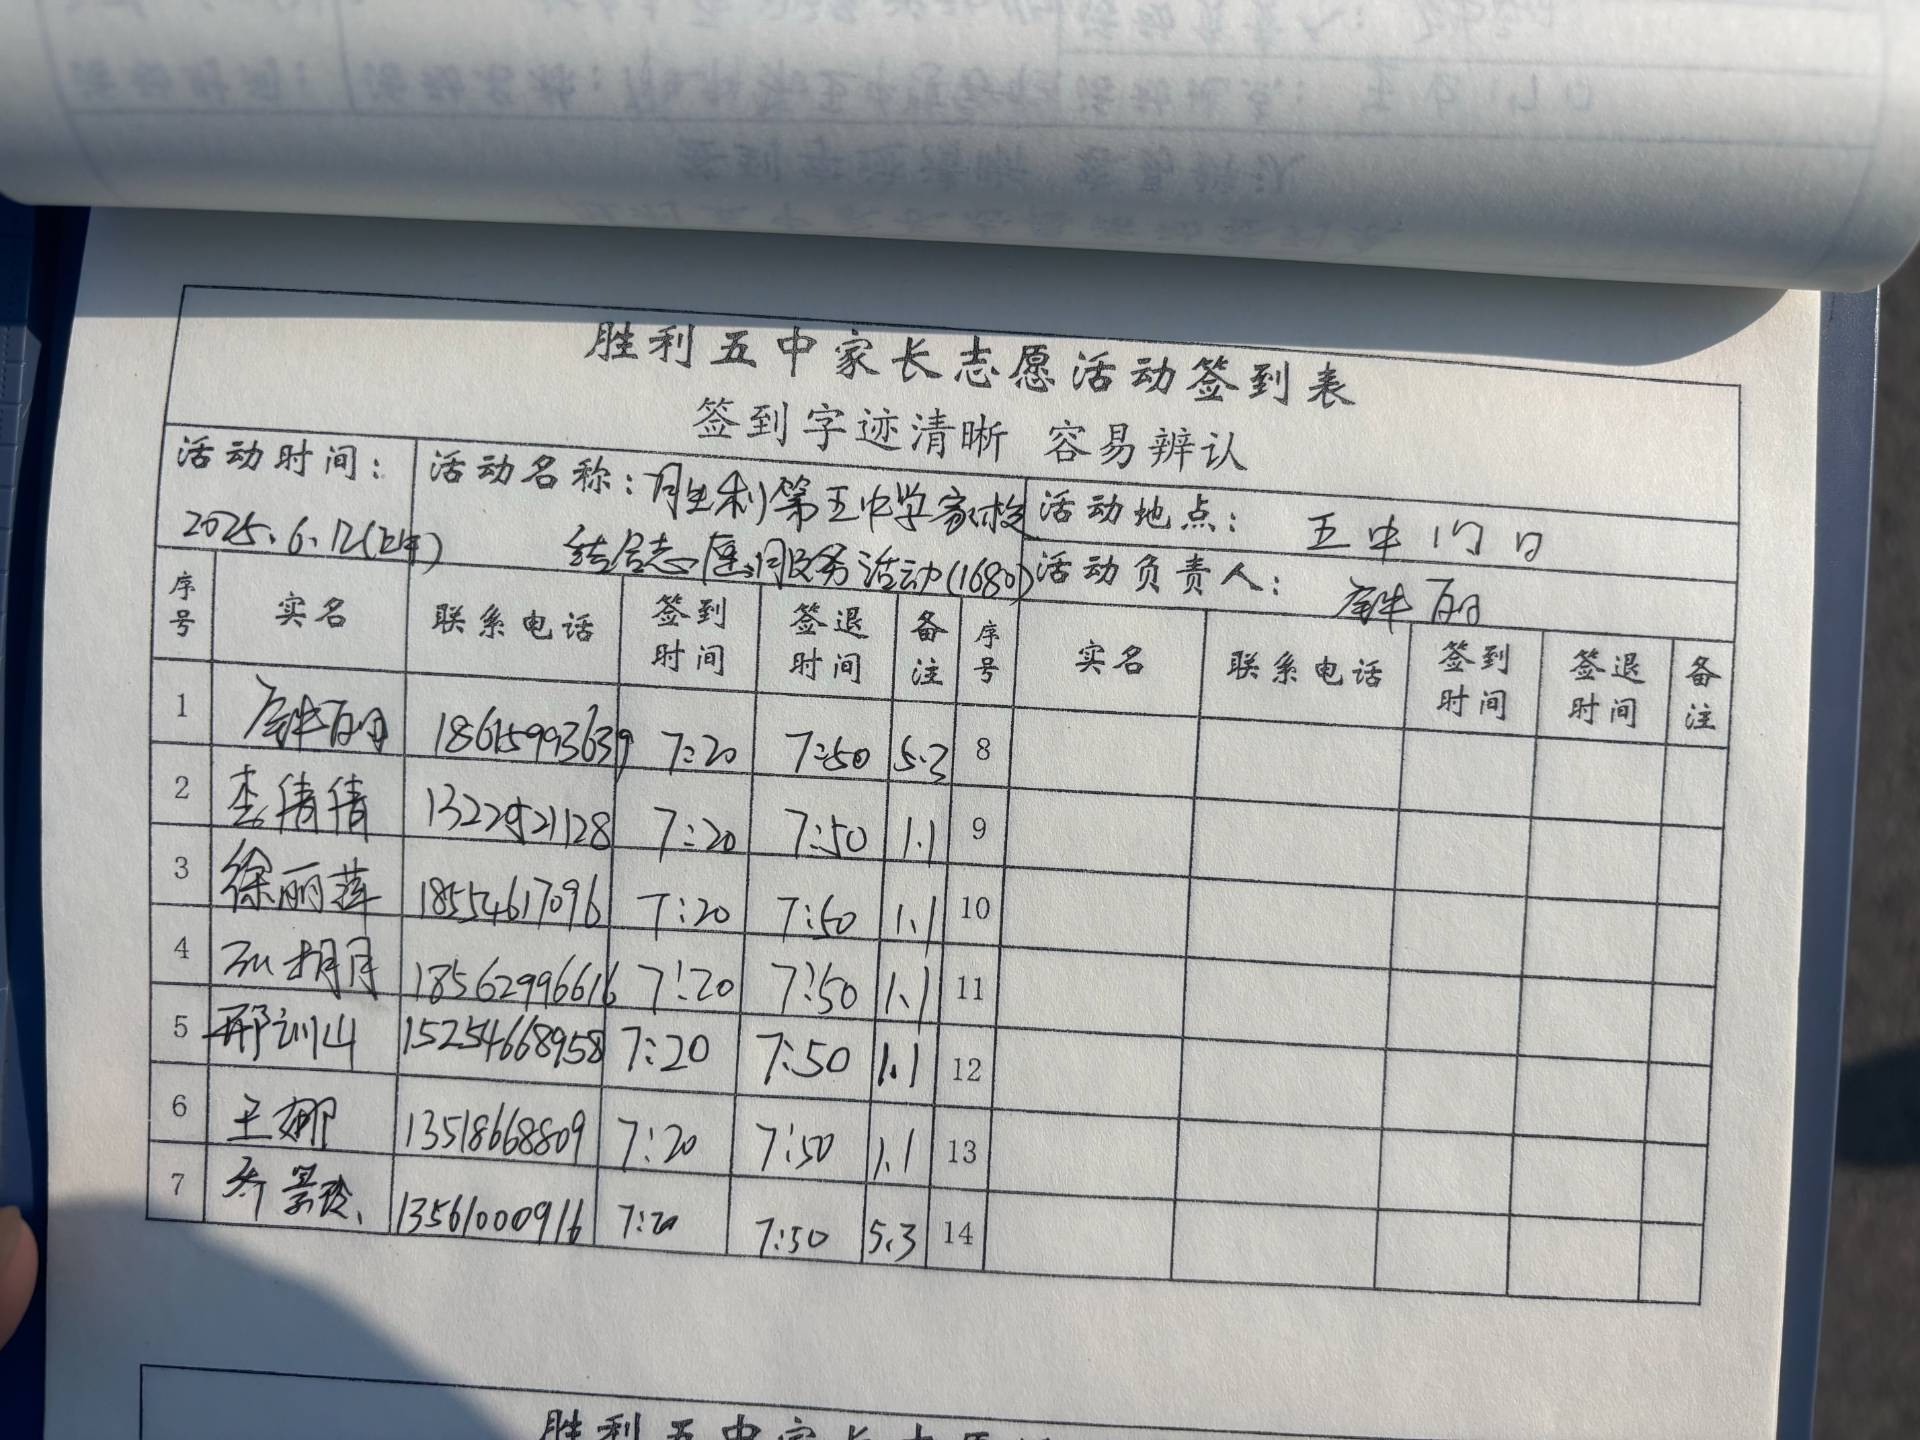 胜利五中家长志愿活动签到表
签到字迹清晰 容易辨认
活动时间: 2025.6.12 活动名称:胜利第五中学家校结合志愿服务活动(1680) 活动地点: 五中门口
活动负责人:
序号 实名 联系电话 签到时间 签退时间 备注 序号 实名 联系电话 签到时间 签退时间 备注
1 18615993639 7:20 7:50 5.3 8
2 李倩倩 13229521128 7:20 7:50 1.1 9
3 徐丽莲 18554617096 7:20 7:50 1.1 10
4 18562996616 7:20 7:50 1.1 11
5 邢训山 15254668958 7:20 7:50 1.1 12
6 王娜 13518668809 7:20 7:50 1.1 13
7 齐景玲 13561000916 7:20 7:50 5.3 14
胜利五中家长志愿